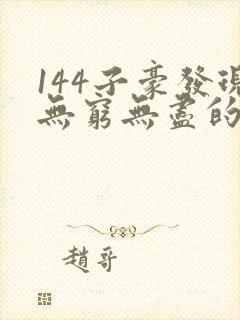 144子豪發現
無窮無盡的
趙哥